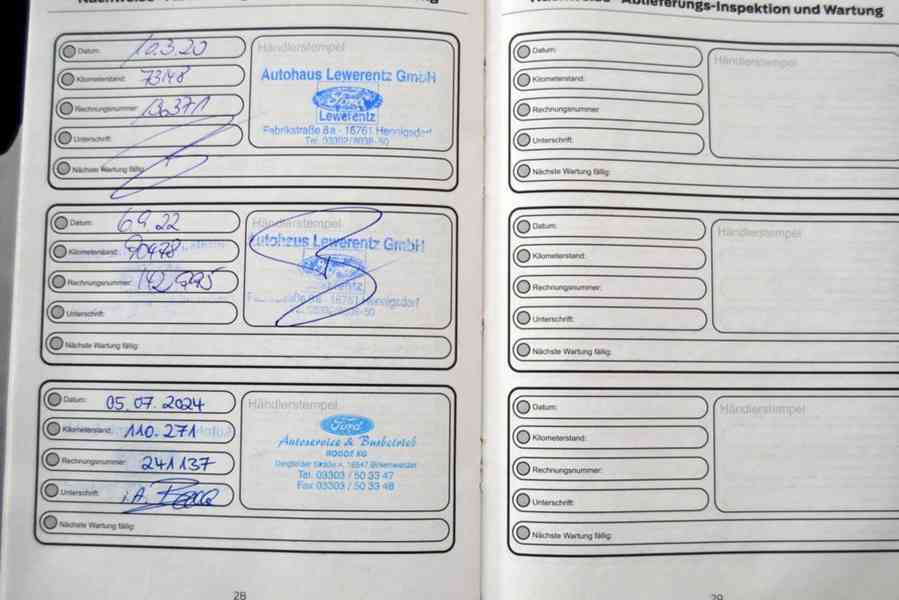 Ablieferungs-Inspektion und Wartung
Datum: 10.3.20
Kilometerstand: 73148
Rechnungsnummer: 13371
Unterschrift:
Nächste Wartung fällig:
Händlerstempel
Autohaus Lewerentz GmbH
Ford
Lewerentz
Fabrikstraße 8a - 16761 Hennigsdorf
Tel. 03302/8038-50
Datum: 6.9.22
Kilometerstand: 90478
Rechnungsnummer: 142995
Unterschrift:
Nächste Wartung fällig:
Händlerstempel
Autohaus Lewerentz GmbH
Lewerentz
Fabrikstraße 8a - 16761 Hennigsdorf
Datum: 05.07.2024
Kilometerstand: 110.271
Rechnungsnummer: 241137
Unterschrift: i.A.
Nächste Wartung fällig:
Händlerstempel
Ford
Autoservice & Busbetrieb
KG
16547 Birkenwerder
Tel. 03303 / 50 33 47
Fax 03303 / 50 33 48
28
Datum:
Kilometerstand:
Rechnungsnummer:
Unterschrift:
Nächste Wartung fällig:
Händlerstempel
Datum:
Kilometerstand:
Rechnungsnummer:
Unterschrift:
Nächste Wartung fällig:
Händlerstempel
Datum:
Kilometerstand:
Rechnungsnummer:
Unterschrift:
Nächste Wartung fällig:
Händlerstempel
29